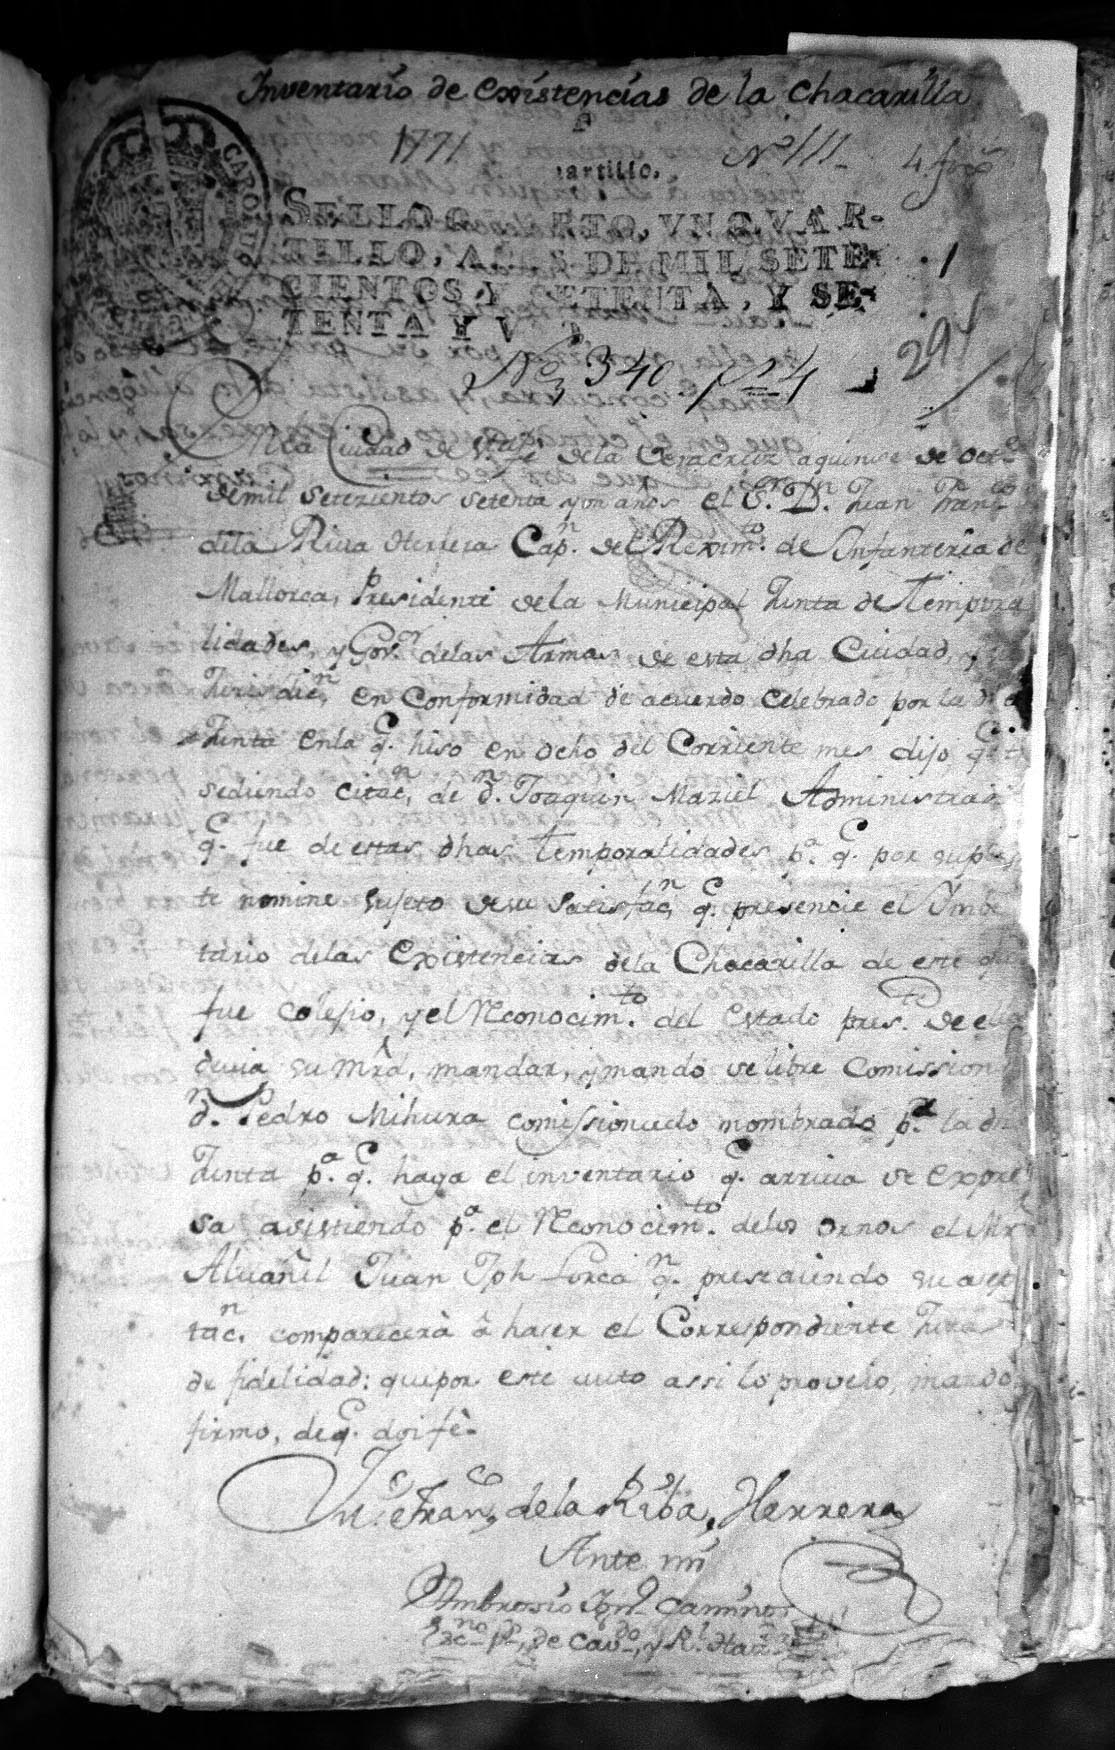 Inventario de existencias de la Chacarilla
1771
Nº 111
4. foxs
artillo.
SELLO QUARTO, VN QVAR-
TILLO, AÑOS DE MIL SETE-
CIENTOS Y SETENTA, Y SE-
TENTA Y V
1
294
Nº 340 p 4
En la Ciudad de Sta fe de la Veracruz a quinse de Octe
de mil setezientos setenta y un años el Sr. Dn. Juan Franco
de la Riva Herrera Capn. del Reximto. de Infanteria de
Mallorca, Presidente de la Municipal Junta de Tempora
lidades, y Govor. delas Armas de esta dha Ciudad, y
Jurisdicn, en Conformidad de acuerdo celebrado por la dha
Junta enla q. hiso en ocho del Corriente mes dijo q.
sediendo citacn, de dn. Joaquin Maziel Administrador
q. fue de estas dhas Temporalidades pa. q. por su par
te nomine sujeto de su satisfacn, q. presencie el Inbe
tario delas Existencias dela Chacarilla de este que
fue colejio, y el Reconocimto. del Estado preste. de ella
devia su Mrd, mandar, y mando se libre Comission
dn. Pedro Mihura comissionado nombrado pr. la dha
Junta pa. q. haga el inventario q. arriva se expre
sa asistiendo pa. el Reconocimto. delos ornos el Mro
Alvañil Juan Jph Lorca qn. prestaiendo su asep
tacn. comparecerà â haser el Correspondiente Jura
de fidelidad: que por este auto assi lo proveio, mando
firmo, de q. doi fè.
Jun. Franco. de la Riba, Herrera
Ante mi
Ambrosio Igno. Camino
Escno. po., de Cavdo., y Rl. Hazda